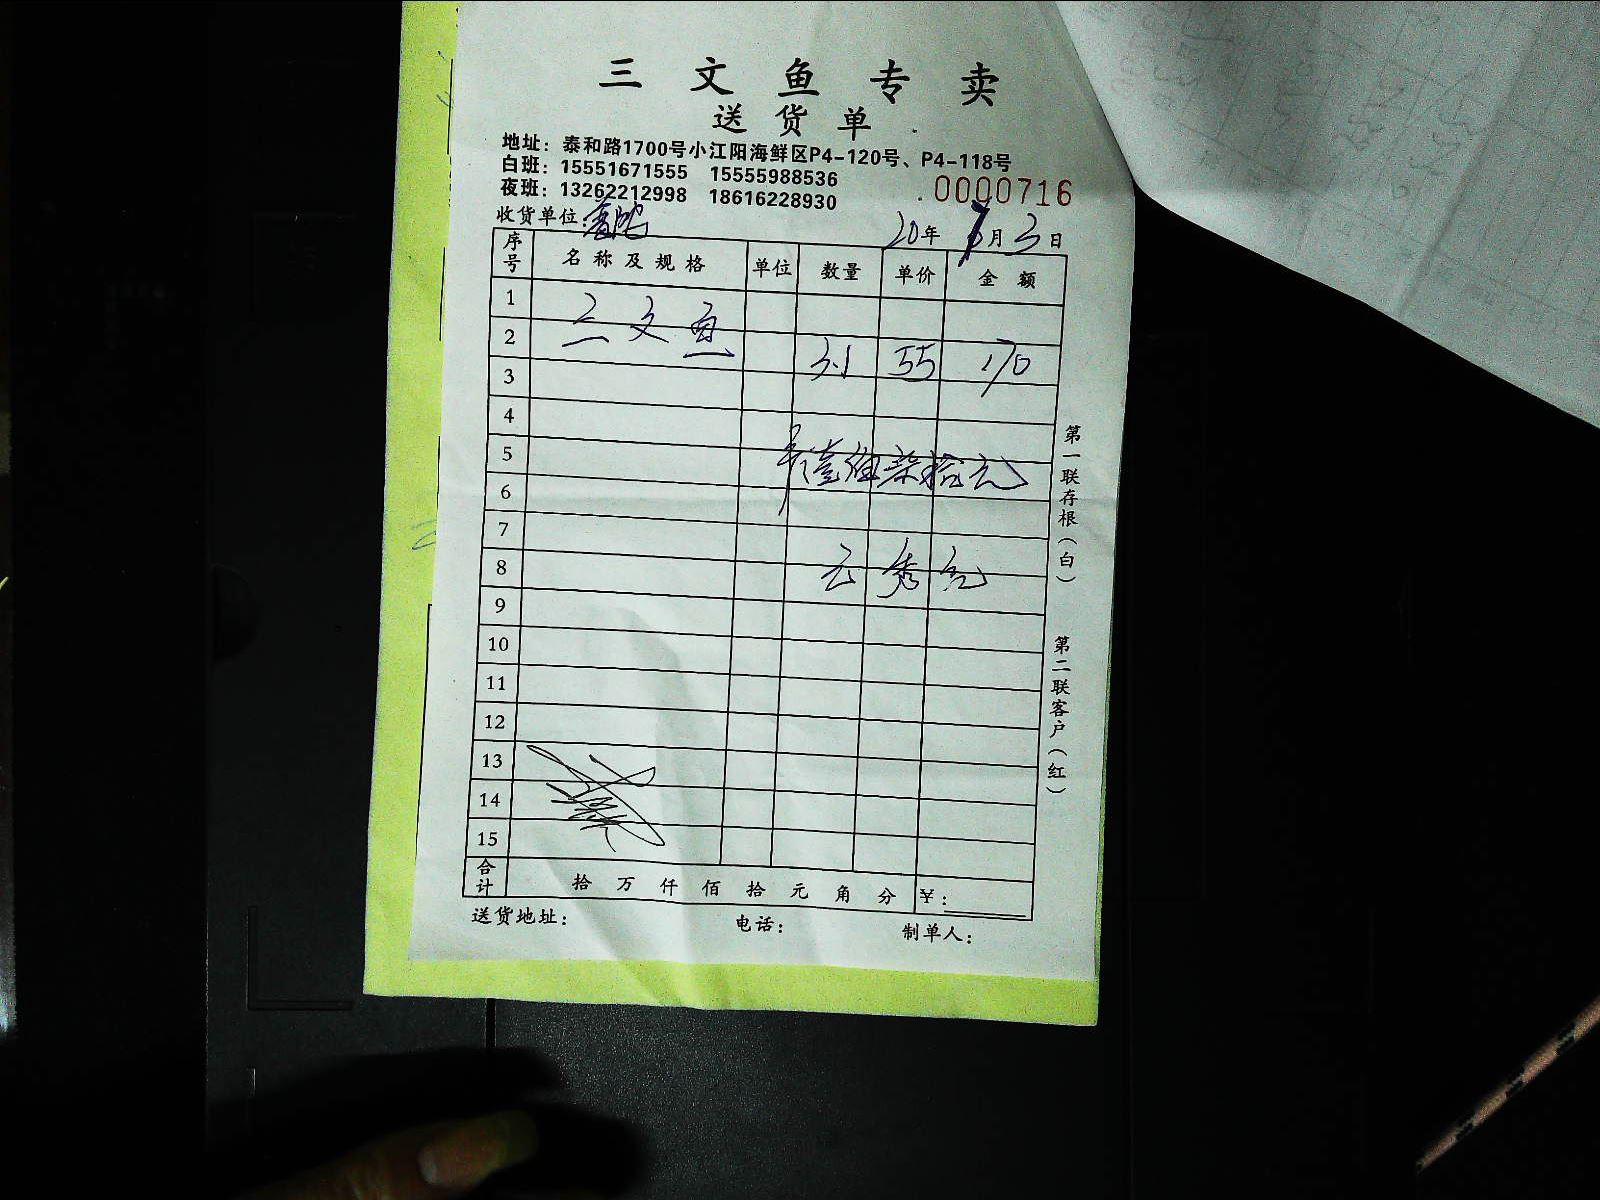 三文鱼专卖
送货单
地址：泰和路1700号小江阳海鲜区P4-120号、P4-118号
白班：15551671555 15555988536
夜班：13262212998 18616228930
0000716
收货单位：
20年 月3日
序号 名称及规格 单位 数量 单价 金额
1
三文鱼 3.1 55 170
2
3
4
5
壹佰柒拾元
6
7
8
9
10
11
12
13
14
15
合计 拾 万 仟 佰 拾 元 角 分 ￥：
送货地址： 电话： 制单人：
第一联存根（白） 第二联客户（红）